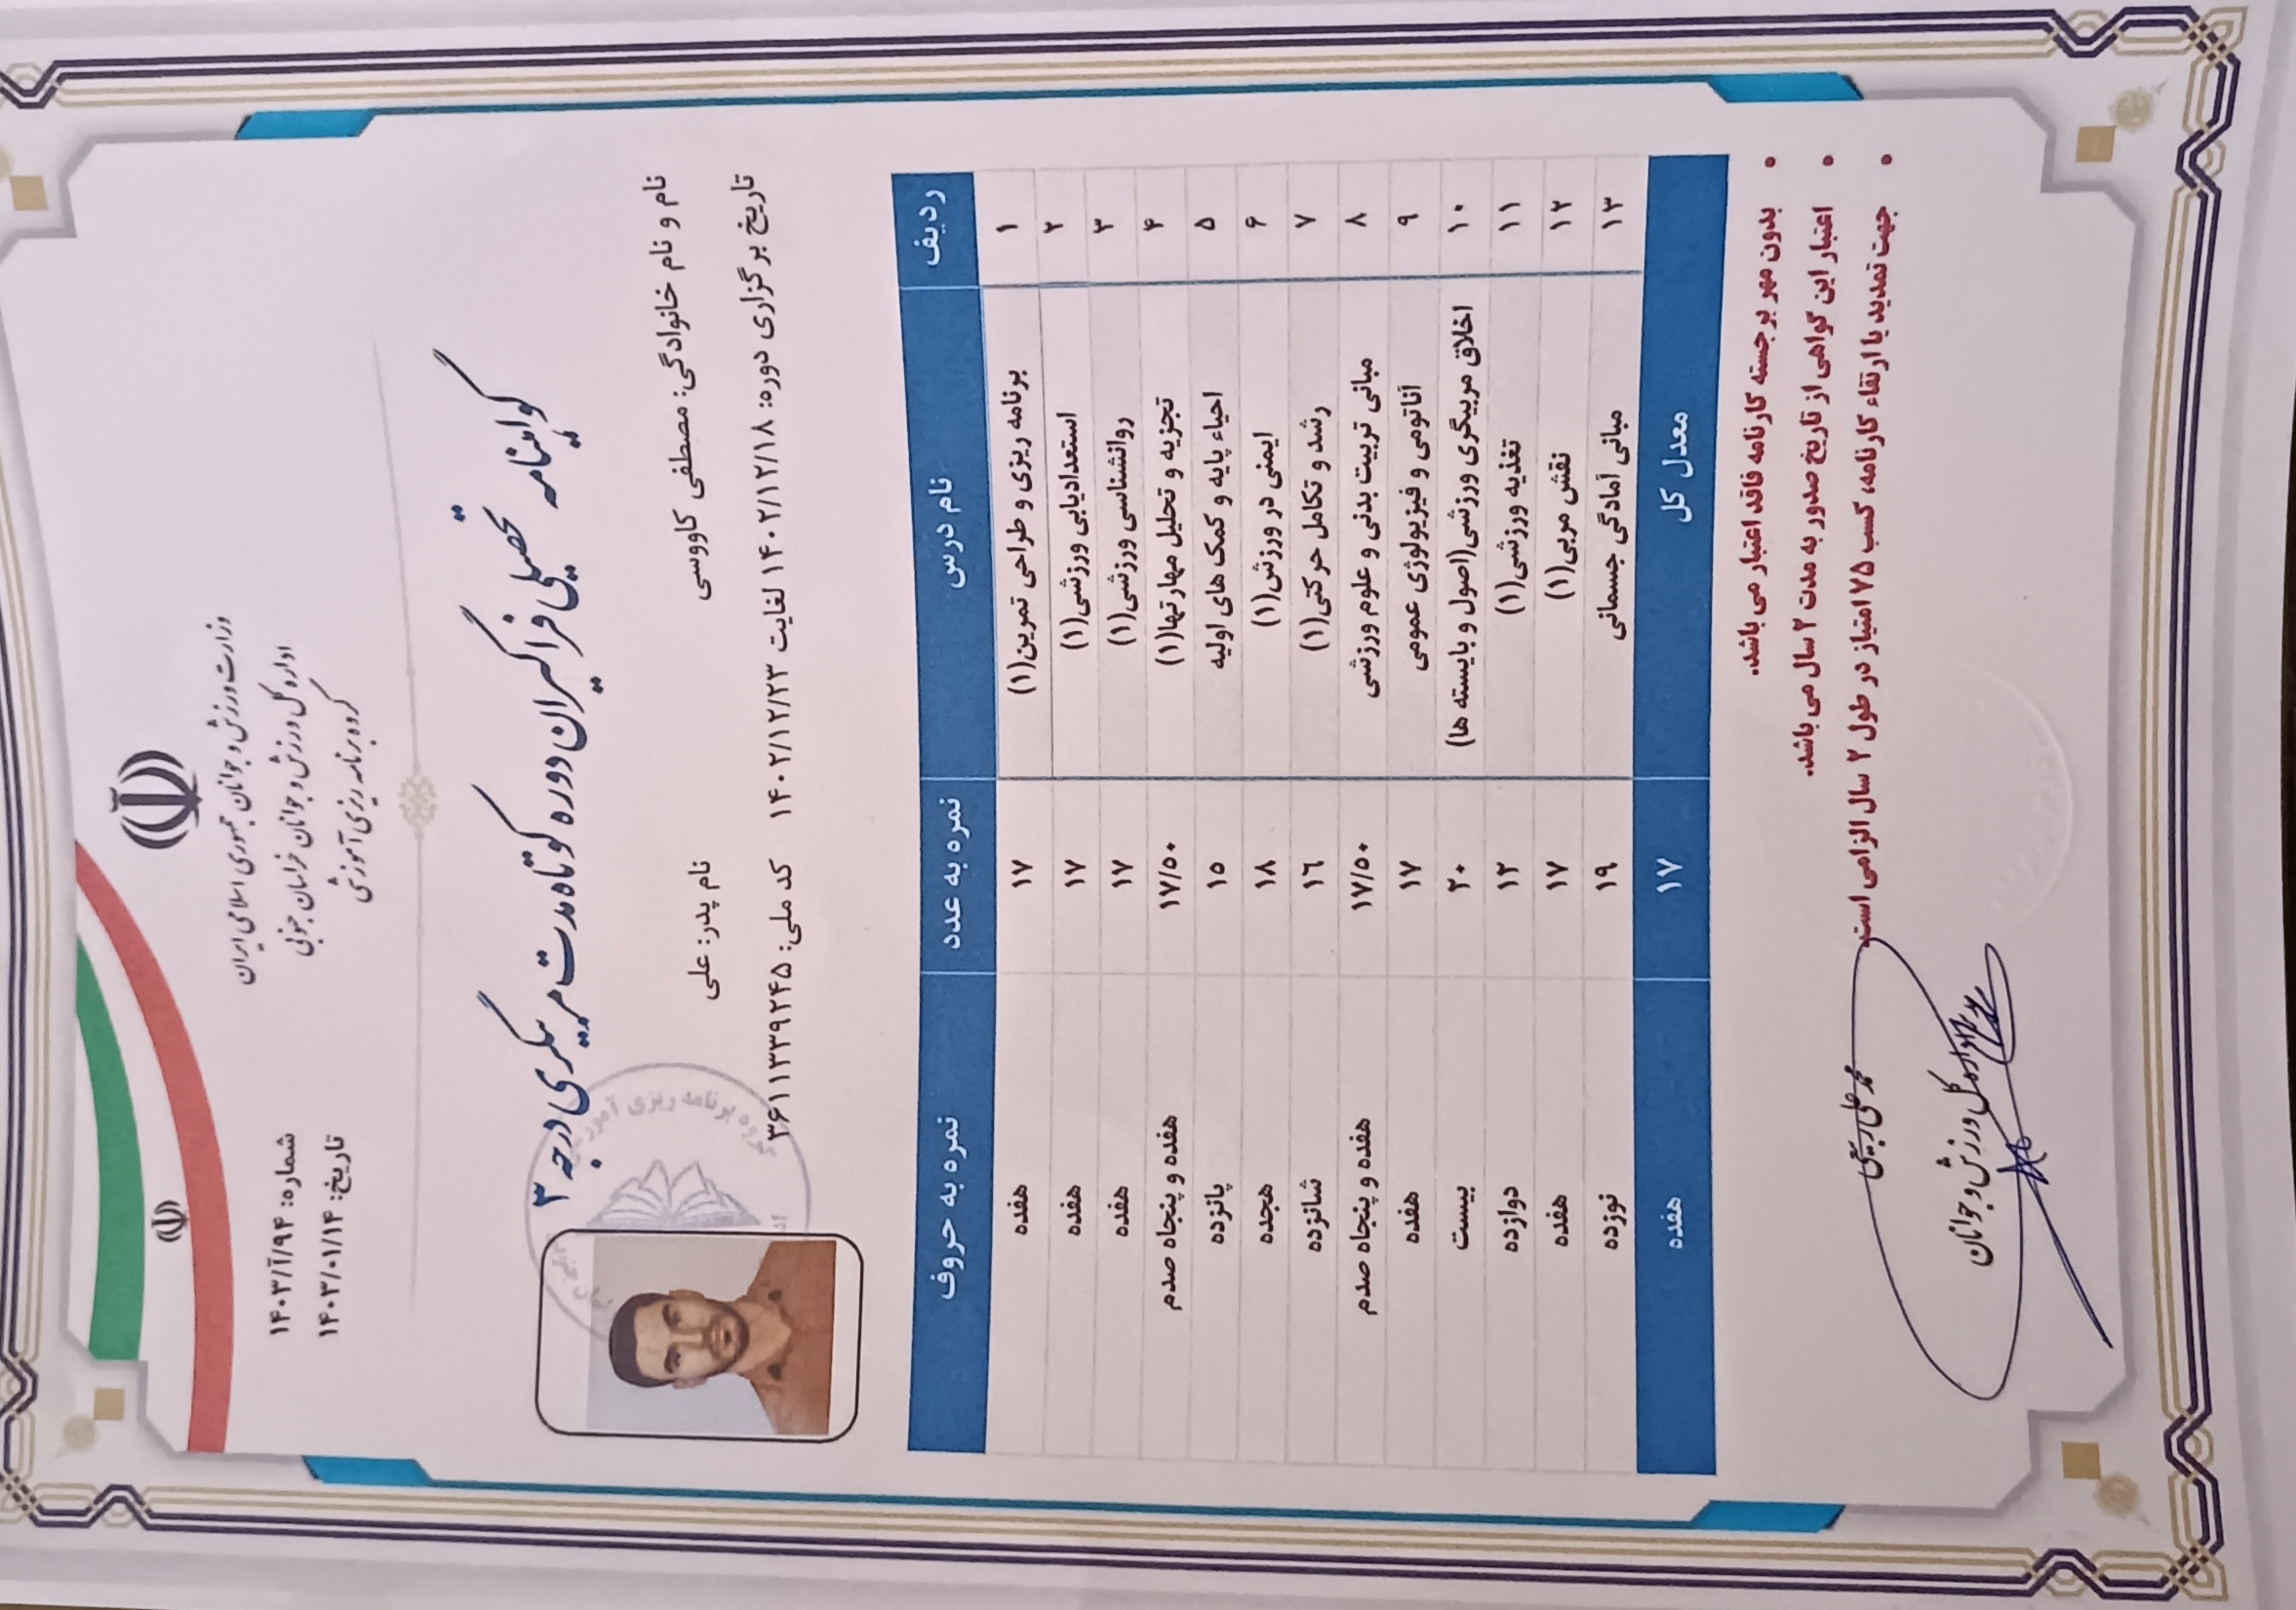 وزارت ورزش و جوانان جمهوری اسلامی ایران
اداره کل ورزش و جوانان خراسان جنوبی
گروه برنامه ریزی آموزشی
شماره: ۱۴۰۳/آ/۹۴
تاریخ: ۱۴۰۳/۰۱/۱۴
گواهینامه تحصیلی فراگیران دوره کوتاه مدت مربیگری درجه ۳
نام و نام خانوادگی: مصطفی کاووسی نام پدر: علی
تاریخ برگزاری دوره: ۱۴۰۲/۱۲/۱۸ لغایت ۱۴۰۲/۱۲/۲۳ کد ملی: ۳۶۱۱۳۳۹۲۴۵
گروه برنامه ریزی
ردیف نام درس نمره به عدد نمره به حروف
۱ برنامه ریزی و طراحی تمرین(۱) ۱۷ هفده
۲ استعدادیابی ورزشی(۱) ۱۷ هفده
۳ روانشناسی ورزشی(۱) ۱۷ هفده
۴ تجزیه و تحلیل مهارتها(۱) ۱۷/۵۰ هفده و پنجاه صدم
۵ احیاء پایه و کمک های اولیه ۱۵ پانزده
۶ ایمنی در ورزش(۱) ۱۸ هجده
۷ رشد و تکامل حرکتی(۱) ۱۶ شانزده
۸ مبانی تربیت بدنی و علوم ورزشی ۱۷/۵۰ هفده و پنجاه صدم
۹ آناتومی و فیزیولوژی عمومی ۱۷ هفده
۱۰ اخلاق مربیگری ورزشی(اصول و بایسته ها) ۲۰ بیست
۱۱ تغذیه ورزشی(۱) ۱۲ دوازده
۱۲ نقش مربی(۱) ۱۷ هفده
۱۳ مبانی آمادگی جسمانی ۱۹ نوزده
معدل کل ۱۷ هفده
• بدون مهر برجسته کارنامه فاقد اعتبار می باشد.
• اعتبار این گواهی از تاریخ صدور به مدت ۲ سال می باشد.
• جهت تمدید یا ارتقاء کارنامه، کسب ۷۵ امتیاز در طول ۲ سال الزامی است.
محمد علی ربیعی
اداره کل ورزش و جوانان